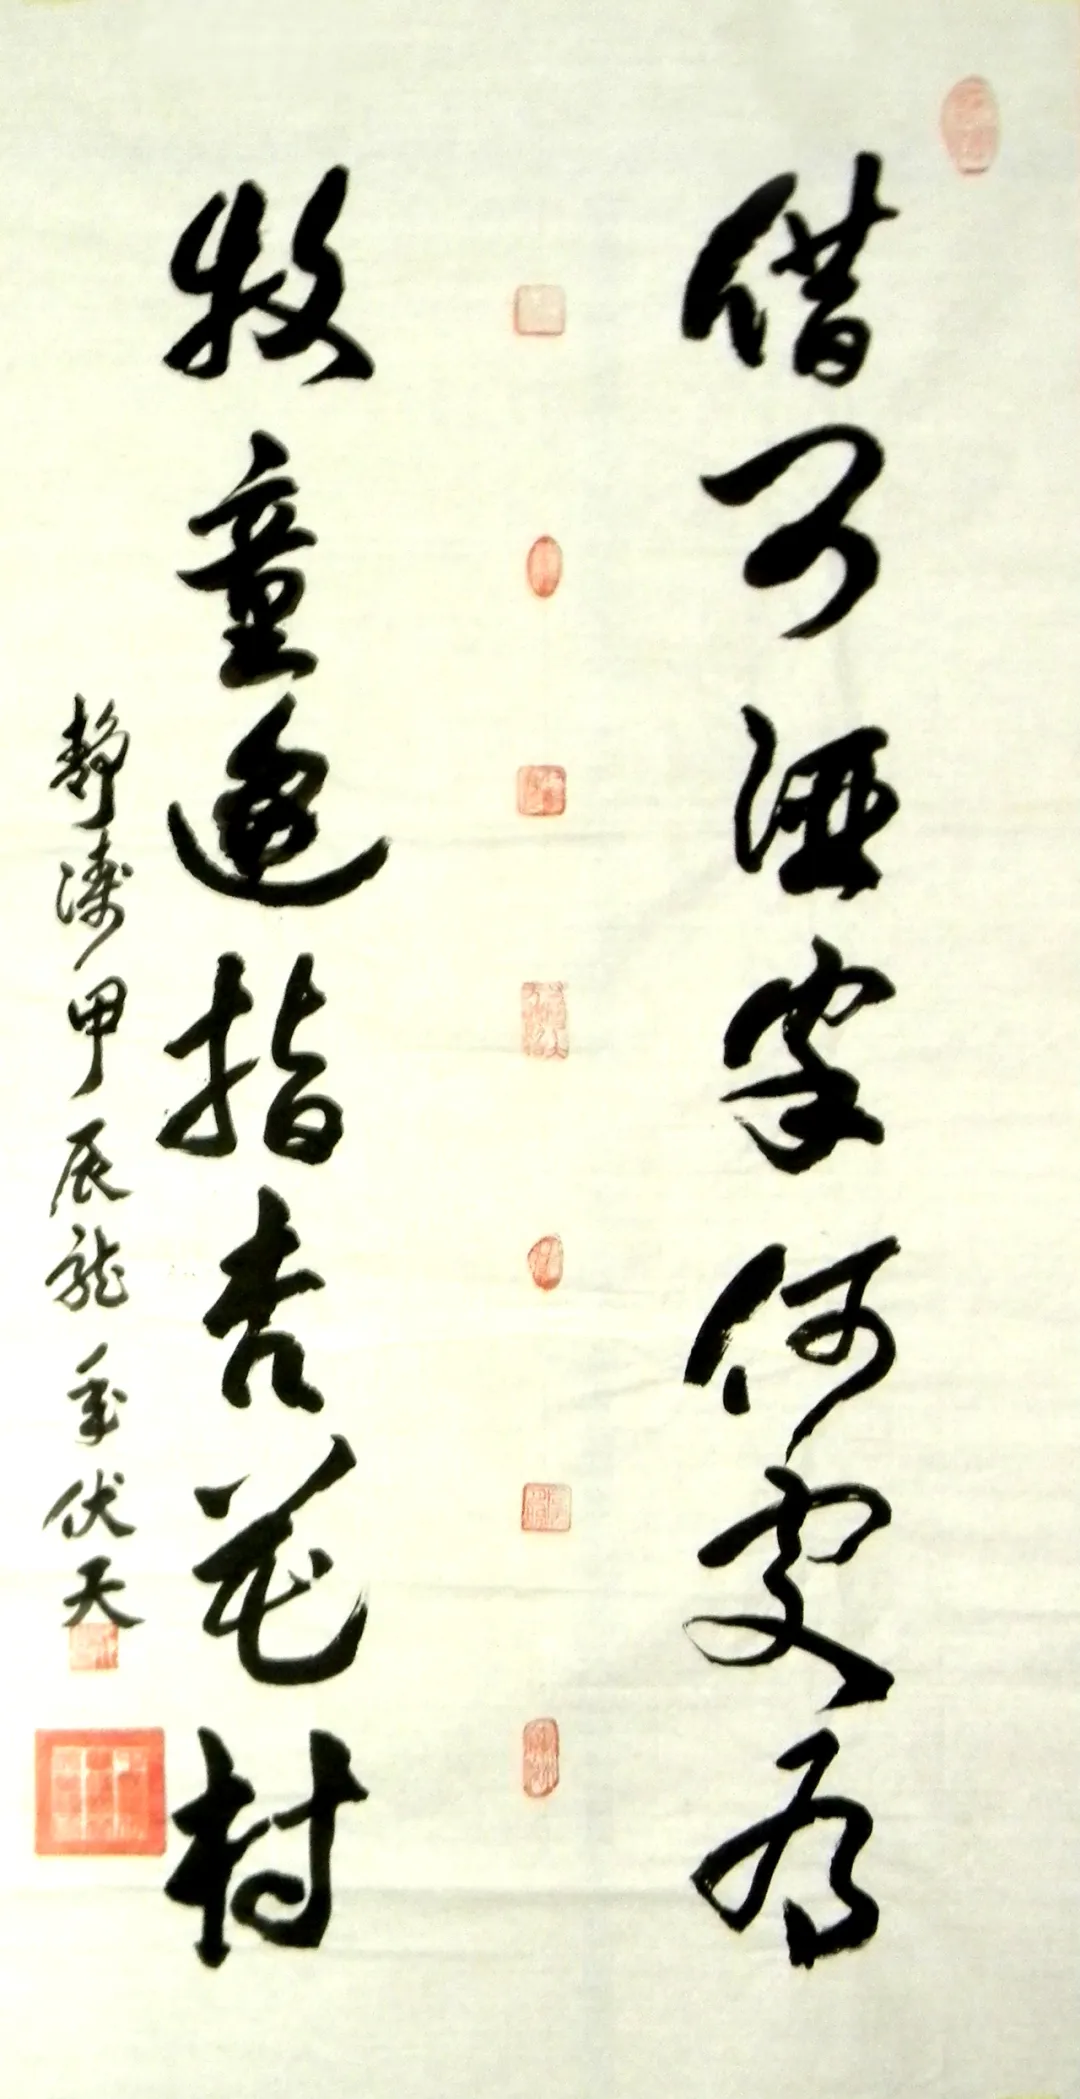 借问酒家何处有
牧童遥指杏花村
静涛甲辰龍年伏天